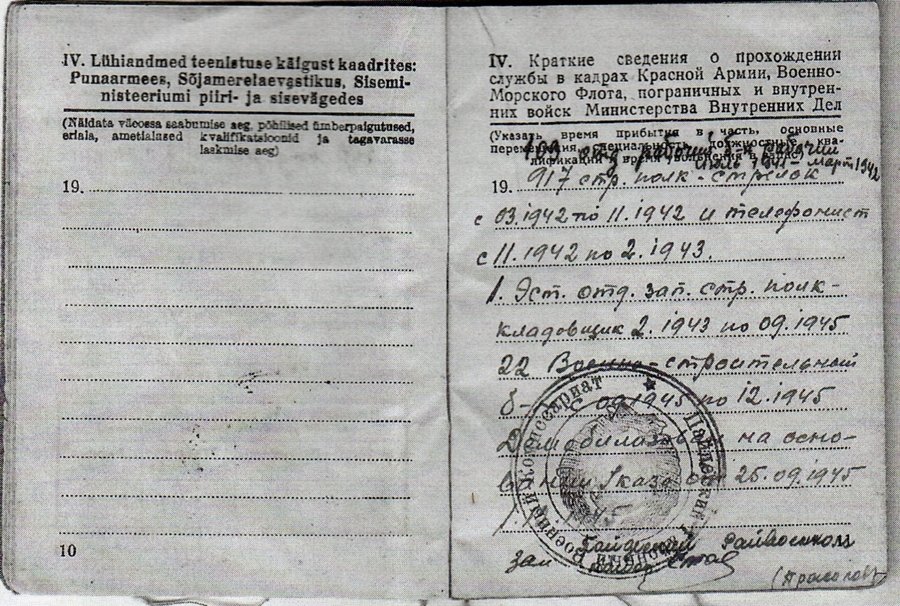 IV. Lühiandmed teenistuse käigust kaadrites:
Punaarmees, Sõjamerelaevastikus, Sisemi-
nisteeriumi piiri- ja sisevägedes
(Näidata väeossa saabumise aeg, põhilised ümberpaigutused,
eriala, ametialased kvalifikatsioonid ja tagavarasse
laskmise aeg)
19.
10
IV. Краткие сведения о прохождении
службы в кадрах Красной Армии, Военно-
Морского Флота, пограничных и внутрен-
них войск Министерства Внутренних Дел
(Указать время прибытия в часть, основные
перемещения, специальность, должностные ква-
лификации и время увольнения в запас)
рабочий
1941 - март 1942
19. 917 стр. полк - стрелок
с 03.1942 по 11.1942 и телефонист
с 11.1942 по 2.1943.
1. Эст. отд. зап. стр. полк -
кладовщик 2.1943 по 09.1945
22 Военно-строительный
б- с 09.1945 по 12.1945
Демобилизован на осно-
вании Указа от 25.09.1945
Пайдеский Райвоенком
зам майор
Военный Комиссариат
Пайдеский